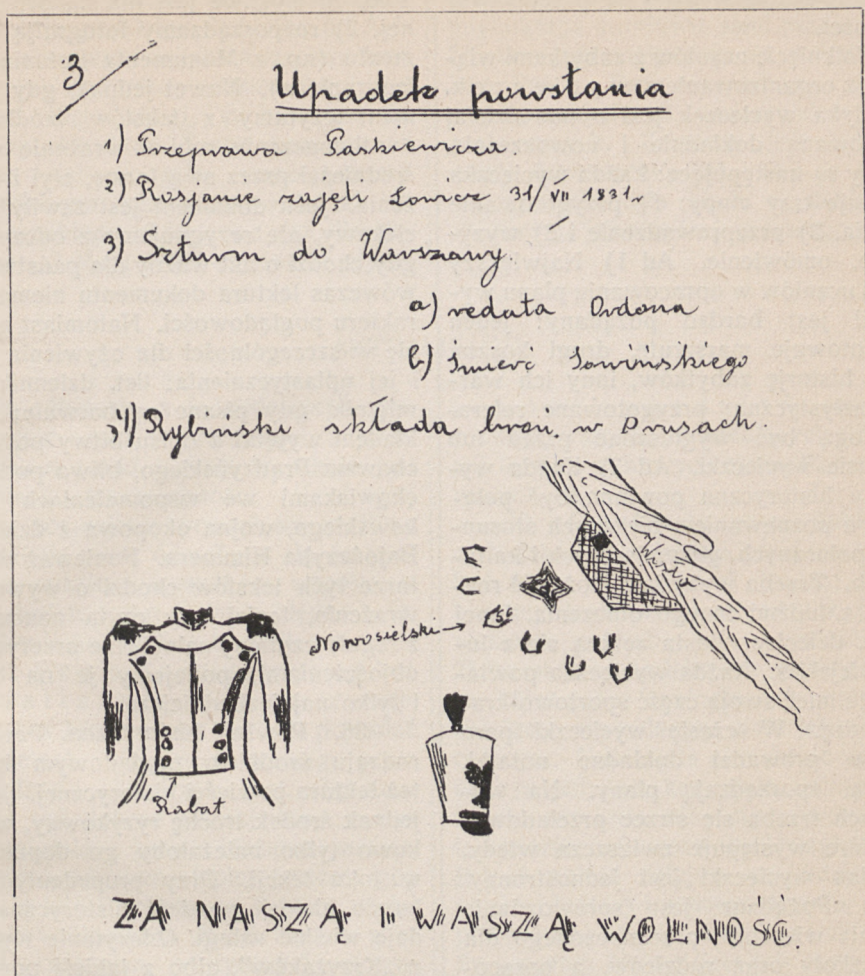 3
Upadek powstania
1) Przeprawa Paskiewicza.
2) Rosjanie zajęli Łowicz 31/VII 1831r
3) Szturm do Warszawy.
a) reduta Ordona
b) śmierć Sowińskiego
4) Rybiński składa broń w Prusach.
Wisła
56
Nowosielski
Rabat
ZA NASZĄ I WASZĄ WOLNOŚĆ.